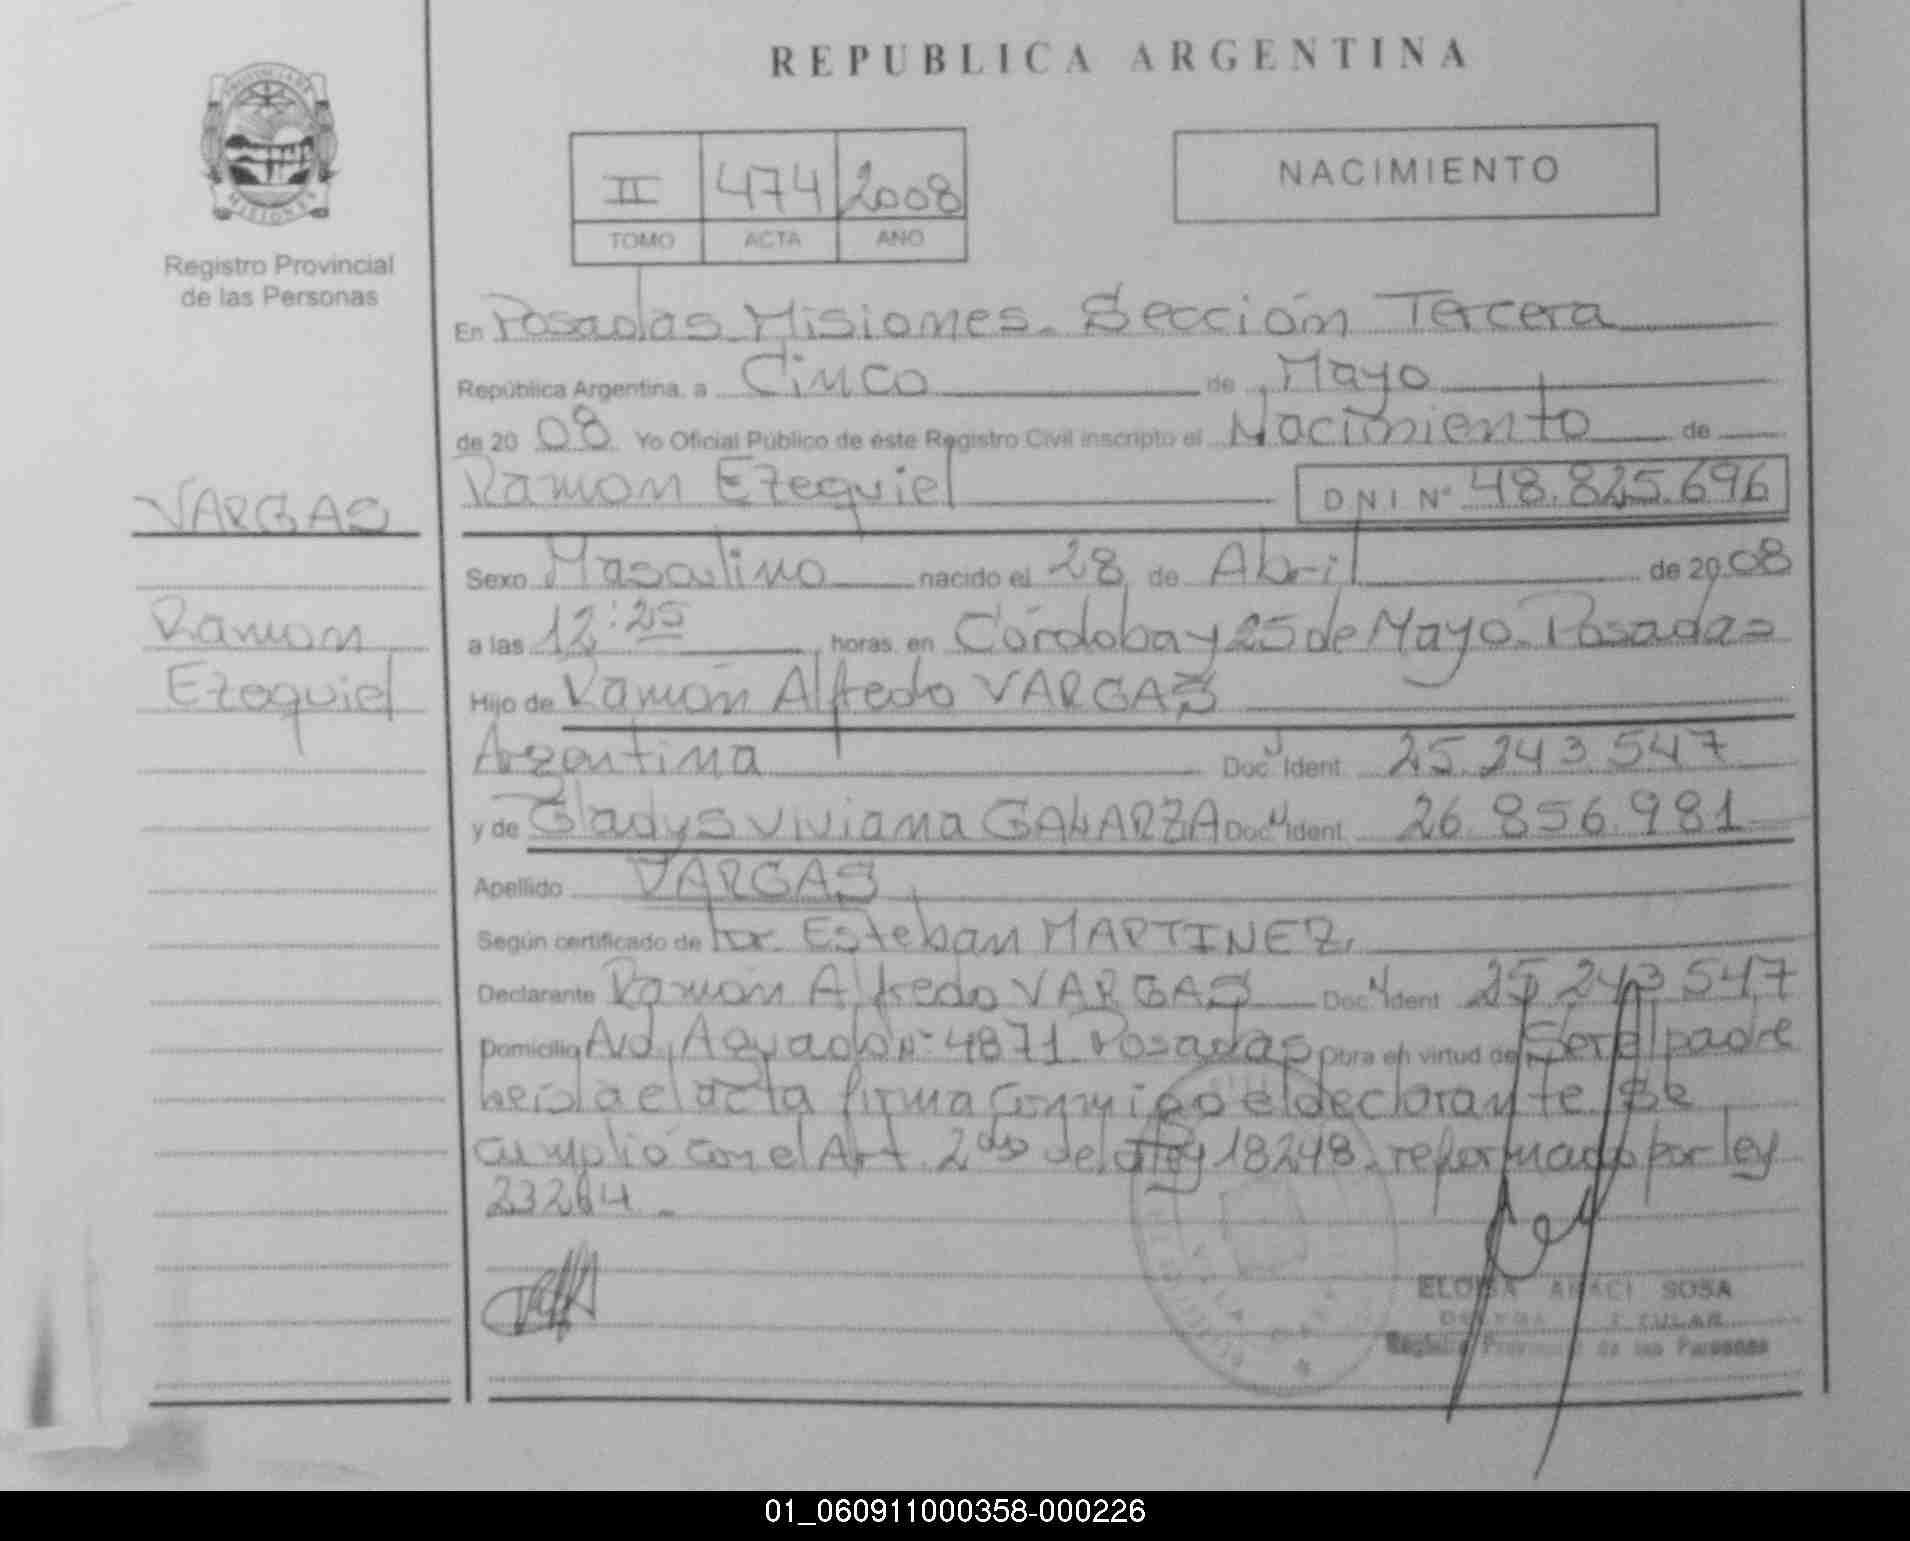 REPUBLICA ARGENTINA
PROVINCIA DE
MISIONES
Registro Provincial
de las Personas
II 474 2008
TOMO ACTA AÑO
NACIMIENTO
En Posadas Misiones. Sección Tercera
República Argentina, a Cinco de Mayo
de 2008 Yo Oficial Público de éste Registro Civil inscripto el Nacimiento de
VARGAS
Ramon Ezequiel DNI Nº 48.825.696
Sexo Masculino nacido el 28 de Abril de 2008
Ramon
a las 12:25 horas, en Córdoba y 25 de Mayo. Posadas
Ezequiel
Hijo de Ramón Alfredo VARGAS
Argentina Doc. Ident. 25.243.547
y de Gladys Viviana GALARZA Doc. Ident. 26.856.981
Apellido VARGAS
Según certificado de Esteban MARTINEZ.
Declarante Ramón Alfredo VARGAS Doc. Ident 25 243 547
Domicilio Avd. Aguado Nº 4871 Posadas Obra en virtud de Ser el padre
Leída el acta firma conmigo el declarante. Se
cumplió con el Art. 2do de la ley 18248. reformado por ley
23264.
ELOISA ARACI SOSA
Registro Provincial de las Personas
01_060911000358-000226